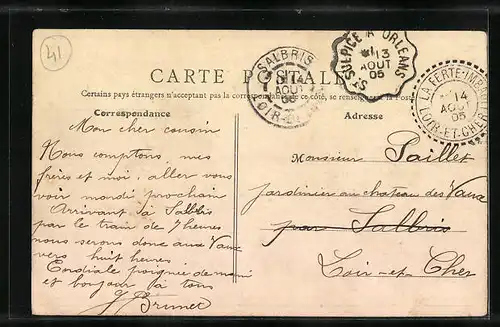 41
CARTE POSTALE
Certains pays étrangers n'acceptant pas la correspondance de ce côté, se renseigner à la Poste
Correspondance
Adresse
SALBRIS
AOUT
05
LOIR-ET-CHER
St SULPICE A ORLEANS
13
AOUT
05
LA FERTÉ-IMBAULT
14
AOUT
05
LOIR-ET-CHER
Mon cher cousin
Nous comptons, mes
frères et moi, aller vous
voir mardi prochain
Arrivant à Salbris
par le train de 7 heures
nous serons donc aux Vaux
vers huit heures
Cordiale poignée de main
et bonjour à tous
J. Brunet
Monsieur Paillet
jardinier au château des Vaux
par Salbris
Loir-et-Cher